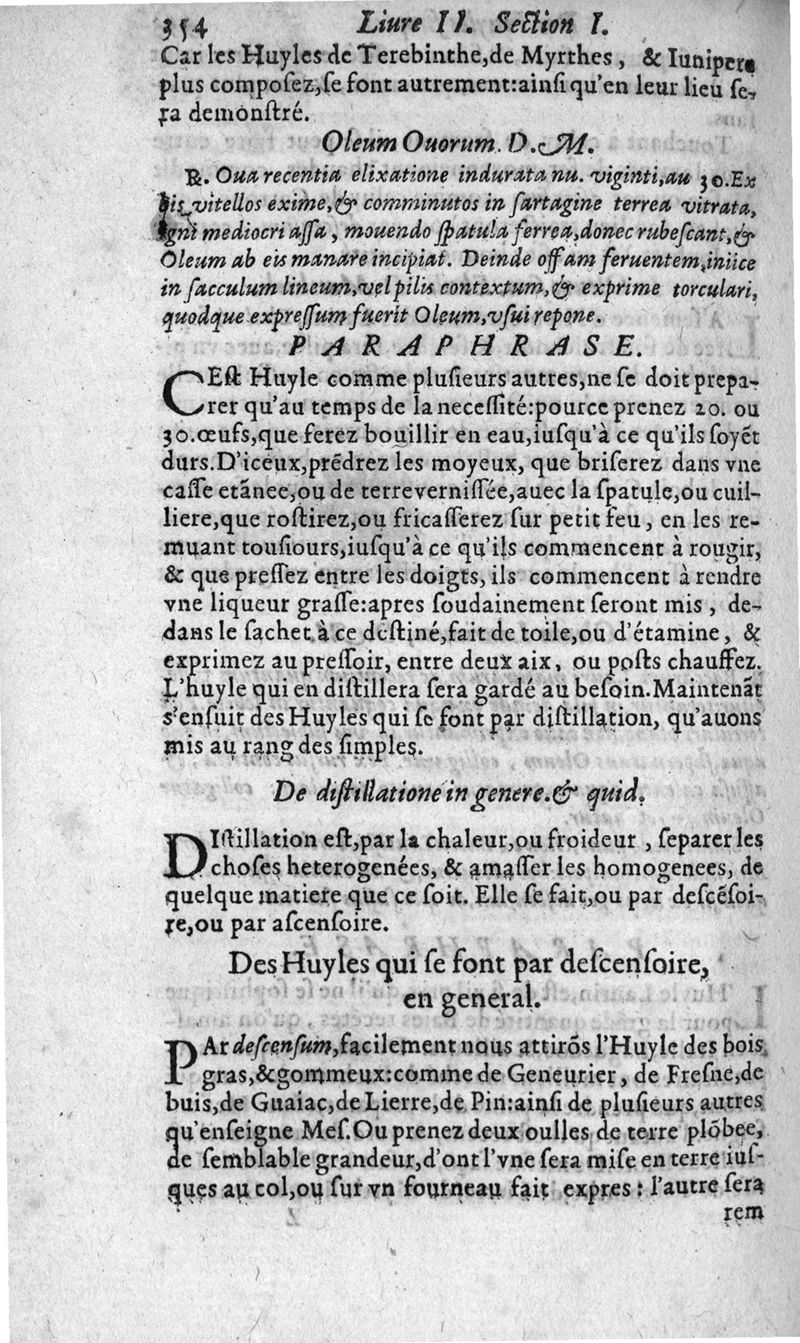 354 Liure II. Section I.
Car les Huyles de Terebinthe,de Myrthes, & Iunipere
plus composez,se font autrement:ainsi qu'en leur lieu se-
ra demonstré.
Oleum Ouorum. D. M.
℞. Oua recentia elixatione indurata nu. viginti,au 30.Ex
his vitellos exime,& comminutos in sartagine terrea vitrata,
igni mediocri assa, mouendo spatula ferrea,donec rubescant,&
Oleum ab eis manare incipiat. Deinde offam feruentem,iniice
in sacculum lineum,vel pilis contextum,& exprime torculari,
quodque expressum fuerit Oleum,vsui repone.
PARAPHRASE.
CEst Huyle comme plusieurs autres,ne se doit prepa-
rer qu'au temps de la necessité:pource prenez 20. ou
30.œufs,que ferez bouillir en eau,iusqu'à ce qu'ils soyẽt
durs.D'iceux,prẽdrez les moyeux, que briserez dans vne
casse etãnee,ou de terre vernissée,auec la spatule,ou cuil-
liere,que rostirez,ou fricasserez sur petit feu, en les re-
muant tousiours,iusqu'à ce qu'ils commencent à rougir,
& que pressez entre les doigts, ils commencent à rendre
vne liqueur grasse:apres soudainement seront mis, de-
dans le sachet à ce destiné,fait de toile,ou d'étamine, &
exprimez au pressoir, entre deux aix, ou posts chauffez.
L'huyle qui en distillera sera gardé au besoin.Maintenãt
s'ensuit des Huyles qui se font par distillation, qu'auons
mis au rang des simples.
De distillatione in genere.& quid.
DIstillation est,par la chaleur,ou froideur, separer les
choses heterogenées, & amasser les homogenees, de
quelque matiere que ce soit. Elle se fait,ou par descẽsoi-
re,ou par ascensoire.
Des Huyles qui se font par descensoire,
en general.
PAr descensum,facilement nous attirõs l'Huyle des bois
gras,& gommeux:comme de Geneurier, de Fresne,de
buis,de Guaiac,de Lierre,de Pin:ainsi de plusieurs autres
qu'enseigne Mes.Ou prenez deux oulles de terre plõbee,
de semblable grandeur,d'ont l'vne sera mise en terre ius-
ques au col,ou sur vn fourneau fait expres: l'autre sera
rem